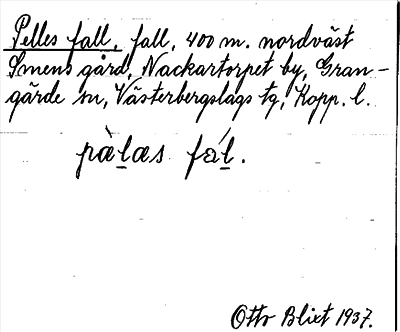 Pelles fall, fall, 400 m. nordväst
Smens gård, Nackartorpet by, Gran-
gärde sn, Västerbergslags tg, Kopp. l.
pæ̀l̲æs fál̲.
Otto Blixt 1937.